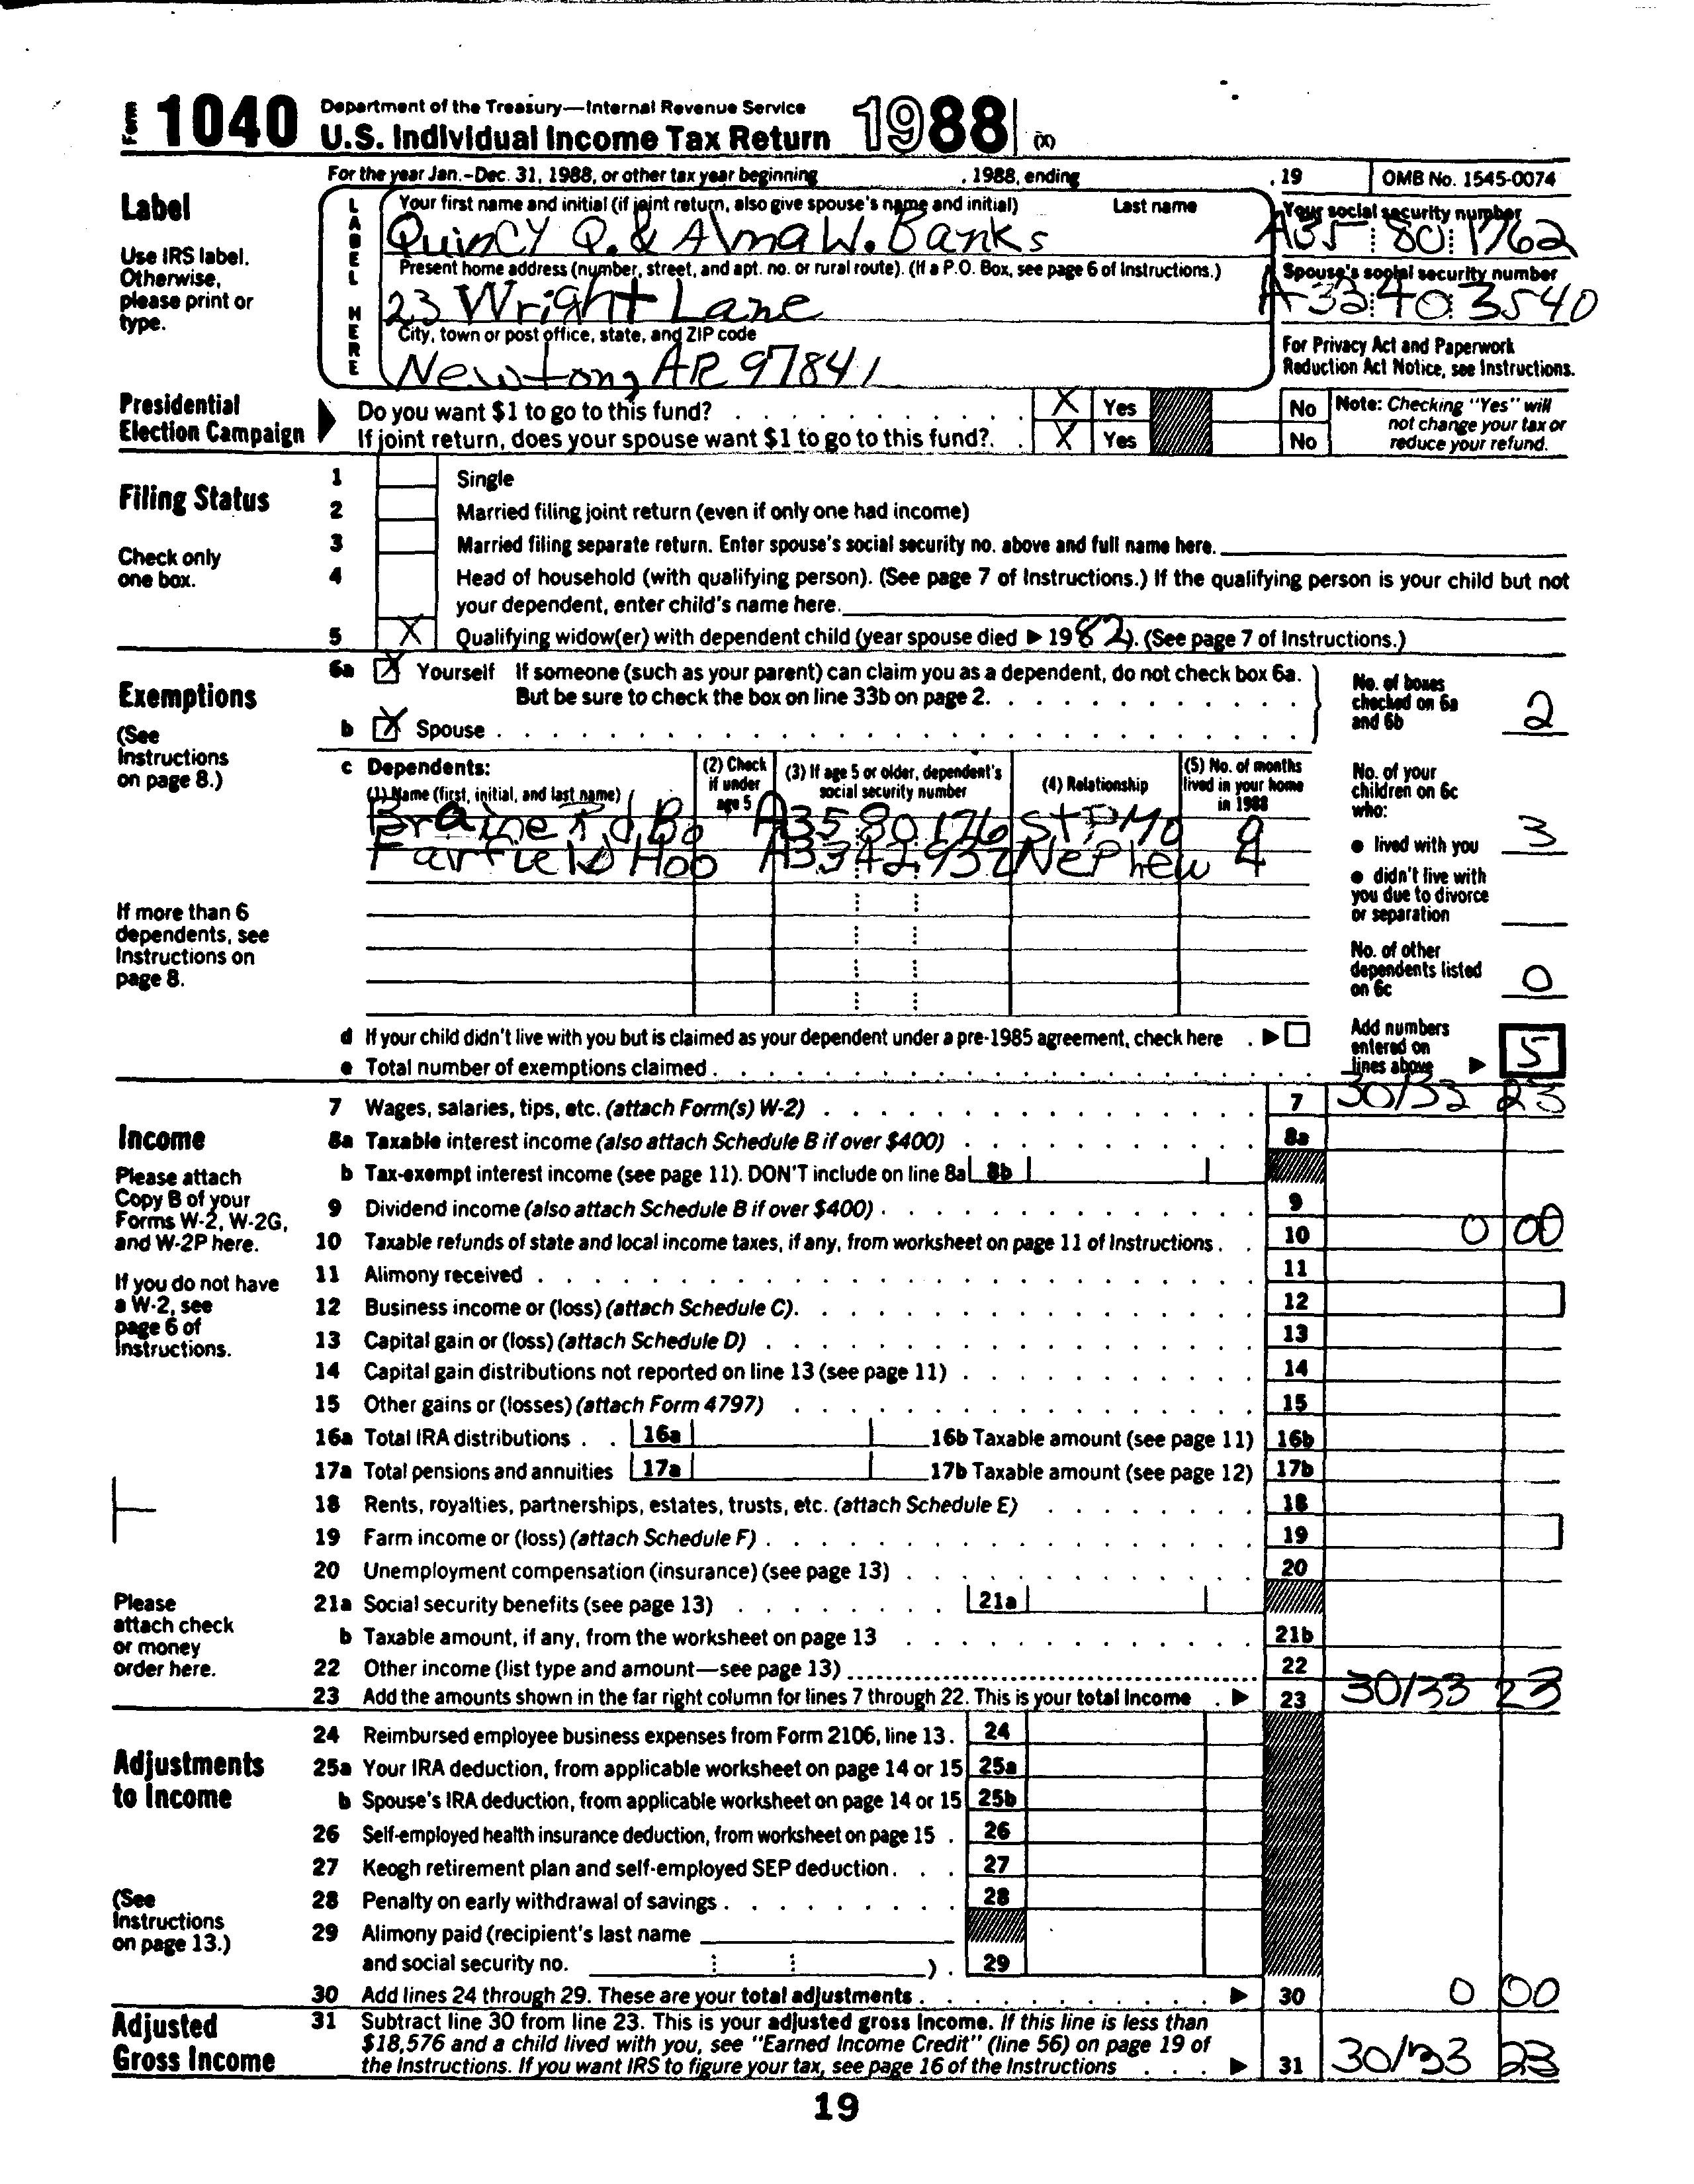 Form 1040 Department of the Treasury—Internal Revenue Service
U.S. Individual Income Tax Return 1988 (X)
For the year Jan.–Dec. 31, 1988, or other tax year beginning , 1988, ending , 19 OMB No. 1545-0074
Label
Use IRS label.
Otherwise,
please print or
type.
LABEL HERE
Your first name and initial (if joint return, also give spouse's name and initial) Last name
Quincy Q. & Alma W. Banks
Your social security number
A35 80 1762
Present home address (number, street, and apt. no. or rural route). (If a P.O. Box, see page 6 of Instructions.)
23 Wright Lane
Spouse's social security number
A33 40 3540
City, town or post office, state, and ZIP code
Newtong AR 97841
For Privacy Act and Paperwork
Reduction Act Notice, see Instructions.
Presidential
Election Campaign
Do you want $1 to go to this fund? X Yes No
If joint return, does your spouse want $1 to go to this fund?. X Yes No
Note: Checking "Yes" will
not change your tax or
reduce your refund.
Filing Status
Check only
one box.
1 Single
2 Married filing joint return (even if only one had income)
3 Married filing separate return. Enter spouse's social security no. above and full name here.
4 Head of household (with qualifying person). (See page 7 of Instructions.) If the qualifying person is your child but not
your dependent, enter child's name here.
5 X Qualifying widow(er) with dependent child (year spouse died ▶ 1982). (See page 7 of Instructions.)
Exemptions
(See
Instructions
on page 8.)
6a X Yourself If someone (such as your parent) can claim you as a dependent, do not check box 6a.
But be sure to check the box on line 33b on page 2.
b X Spouse
No. of boxes
checked on 6a
and 6b 2
c Dependents:
(1) Name (first, initial, and last name)
(2) Check
if under
age 5
(3) If age 5 or older, dependent's
social security number
(4) Relationship
(5) No. of months
lived in your home
in 1988
Brainerd, Bo A35 80 176 StPMo 9
Fairfield Hob A33 42 932 Nephew 4
If more than 6
dependents, see
Instructions on
page 8.
No. of your
children on 6c
who:
● lived with you 3
● didn't live with
you due to divorce
or separation
No. of other
dependents listed
on 6c 0
d If your child didn't live with you but is claimed as your dependent under a pre-1985 agreement, check here . ▶
e Total number of exemptions claimed
Add numbers
entered on
lines above ▶ 5
Income
Please attach
Copy B of your
Forms W-2, W-2G,
and W-2P here.
If you do not have
a W-2, see
page 6 of
Instructions.
Please
attach check
or money
order here.
7 Wages, salaries, tips, etc. (attach Form(s) W-2) 7 30133 23
8a Taxable interest income (also attach Schedule B if over $400) 8a
b Tax-exempt interest income (see page 11). DON'T include on line 8a 8b
9 Dividend income (also attach Schedule B if over $400) 9
10 Taxable refunds of state and local income taxes, if any, from worksheet on page 11 of Instructions 10 0 00
11 Alimony received 11
12 Business income or (loss) (attach Schedule C) 12
13 Capital gain or (loss) (attach Schedule D) 13
14 Capital gain distributions not reported on line 13 (see page 11) 14
15 Other gains or (losses) (attach Form 4797) 15
16a Total IRA distributions 16a 16b Taxable amount (see page 11) 16b
17a Total pensions and annuities 17a 17b Taxable amount (see page 12) 17b
18 Rents, royalties, partnerships, estates, trusts, etc. (attach Schedule E) 18
19 Farm income or (loss) (attach Schedule F) 19
20 Unemployment compensation (insurance) (see page 13) 20
21a Social security benefits (see page 13) 21a
b Taxable amount, if any, from the worksheet on page 13 21b
22 Other income (list type and amount—see page 13) 22
23 Add the amounts shown in the far right column for lines 7 through 22. This is your total income ▶ 23 30133 23
Adjustments
to Income
(See
Instructions
on page 13.)
24 Reimbursed employee business expenses from Form 2106, line 13. 24
25a Your IRA deduction, from applicable worksheet on page 14 or 15 25a
b Spouse's IRA deduction, from applicable worksheet on page 14 or 15 25b
26 Self-employed health insurance deduction, from worksheet on page 15 26
27 Keogh retirement plan and self-employed SEP deduction 27
28 Penalty on early withdrawal of savings 28
29 Alimony paid (recipient's last name
and social security no. ) 29
30 Add lines 24 through 29. These are your total adjustments ▶ 30 0 00
Adjusted
Gross Income
31 Subtract line 30 from line 23. This is your adjusted gross income. If this line is less than
$18,576 and a child lived with you, see "Earned Income Credit" (line 56) on page 19 of
the Instructions. If you want IRS to figure your tax, see page 16 of the Instructions ▶ 31 30133 23
19